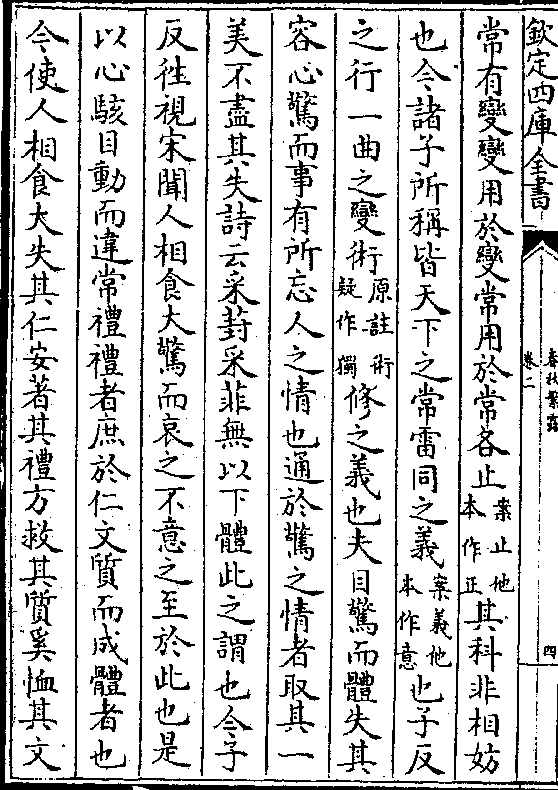 欽定四庫全書
春秋繁露
卷二
四
常有變變用於變常用於常各止案止他本作正其科非相妨
也今諸子所稱皆天下之常雷同之義案義他本作意也子反
之行一曲之變術原註術疑作獨修之義也夫目驚而體失其
容心驚而事有所忘人之情也通於驚之情者取其一
美不盡其失詩云采葑采菲無以下體此之謂也今子
反往視宋聞人相食大驚而哀之不意之至於此也是
以心駭目動而違常禮禮者庶於仁文質而成體者也
今使人相食大失其仁安著其禮方救其質奚恤其文